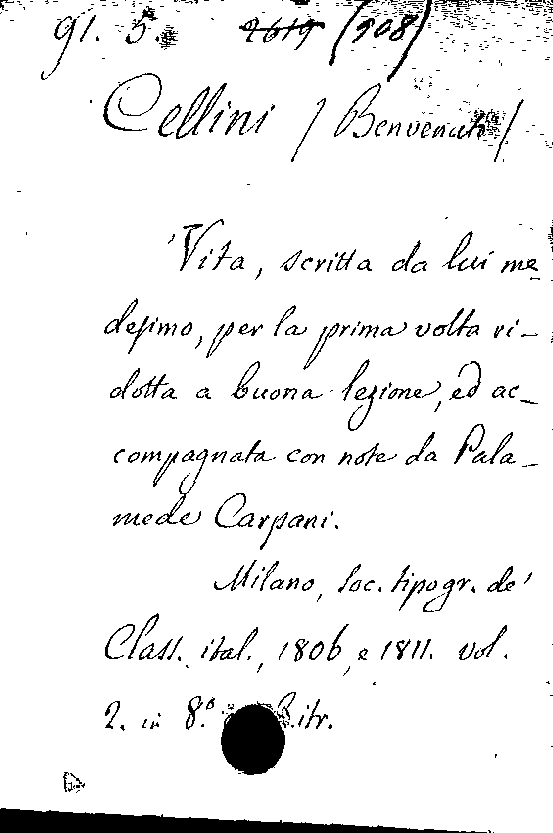 91. 5. 2619 (908)
Cellini / Benvenuto /
Vita, scritta da lui me
desimo, per la prima volta ri-
dotta a buona lezione, ed ac-
compagnata con note da Pala-
mede Carpani.
Milano, Soc. tipogr. de'
Class. ital., 1806, e 1811. vol.
2. in 8.° Ritr.